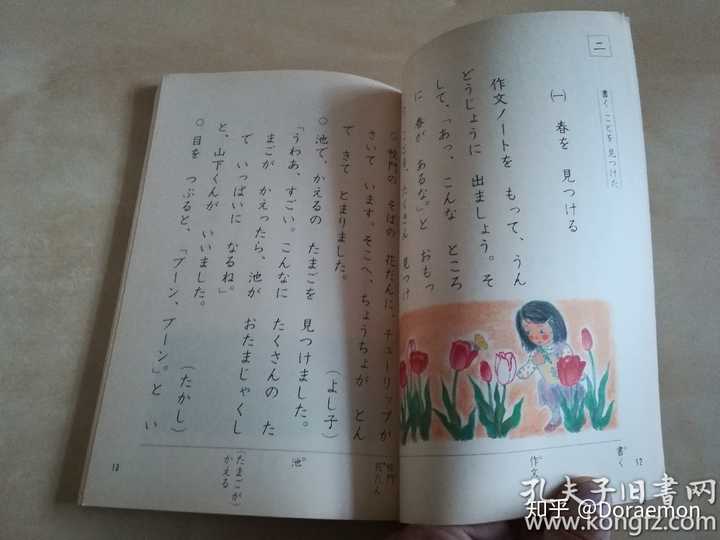 二
書く ことを 見つけた
㈠ 春を 見つける
作文ノートを もって、うん
どうじょうに 出ましょう。そ
して、「あっ、こんな ところ
に 春が あるな。」と おもっ
書く
作文
12
○校門の そばの 花だんに、チューリップが
さいて います。そこへ、ちょうちょが とん
て きて とまりました。
(よし子)
○池で、かえるの たまごを 見つけました。
「うわあ、すごい。こんなに たくさんの た
まごが かえったら、池が おたまじゃくし
で いっぱいに なるね。」
と、山下くんが いいました。
(たかし)
○目を つぶると、「ブーン、ブーン。」と い
校門
花だん
池
(たまごが)
かえる
13
孔夫子旧书网
知乎 @Doraemon
www.kongfz.com